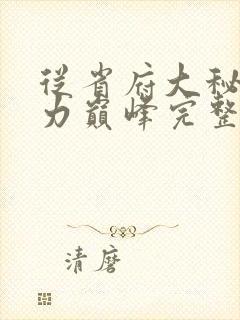 從省府大秘
力巔峰完整
清磨